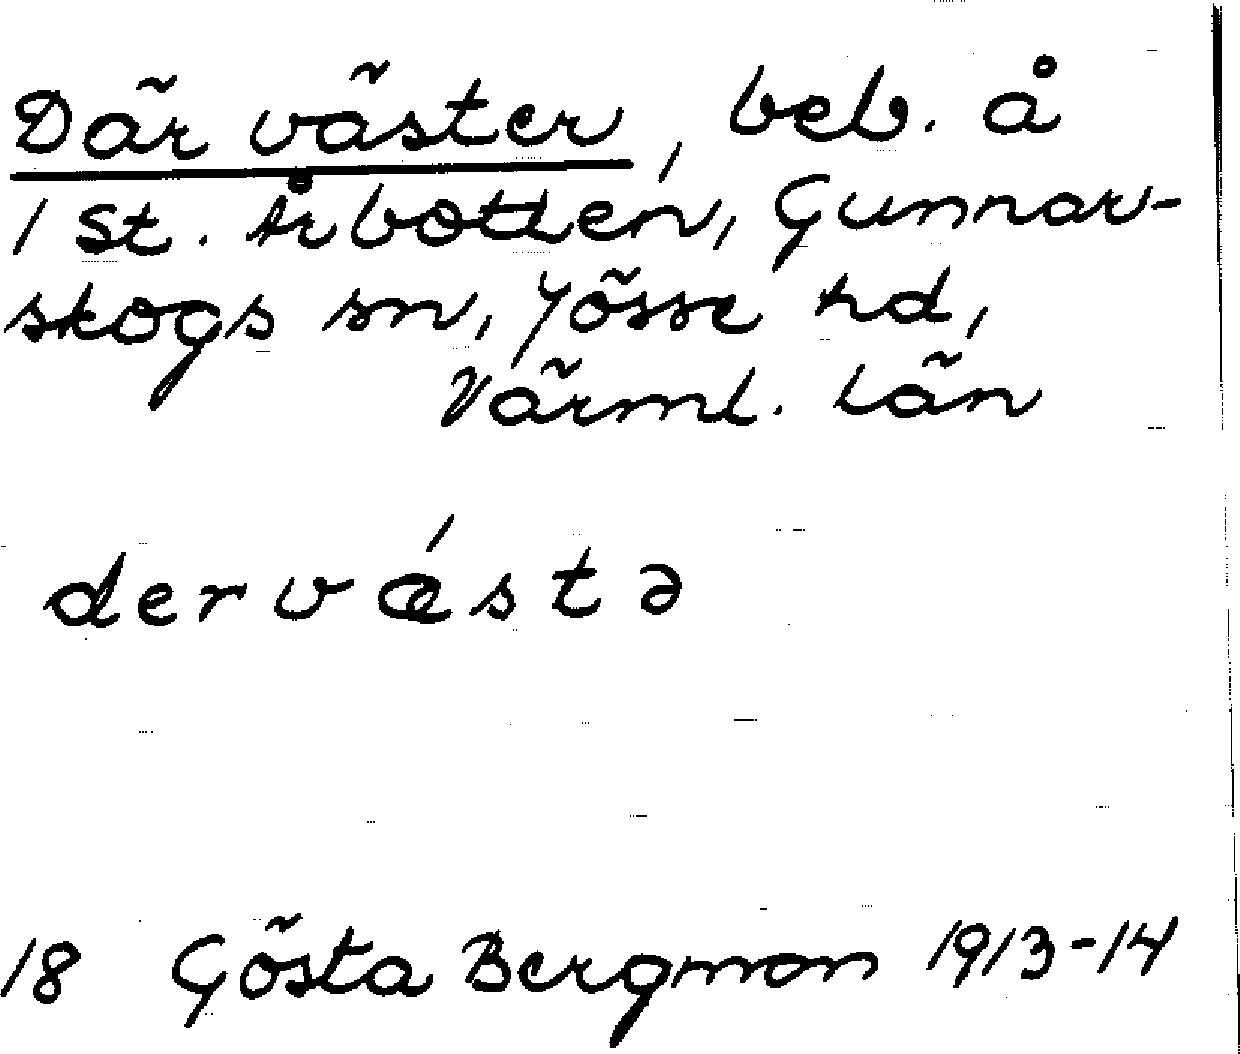 Där väster, beb. å
1 St. Årbotten, Gunnar-
skogs sn, Jösse hd,
Värml. län
dervǽstə
18 Gösta Bergman 1913-14